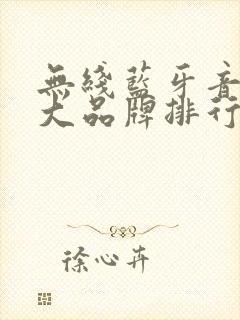 無綫藍牙音
大品牌排行
徐心卉